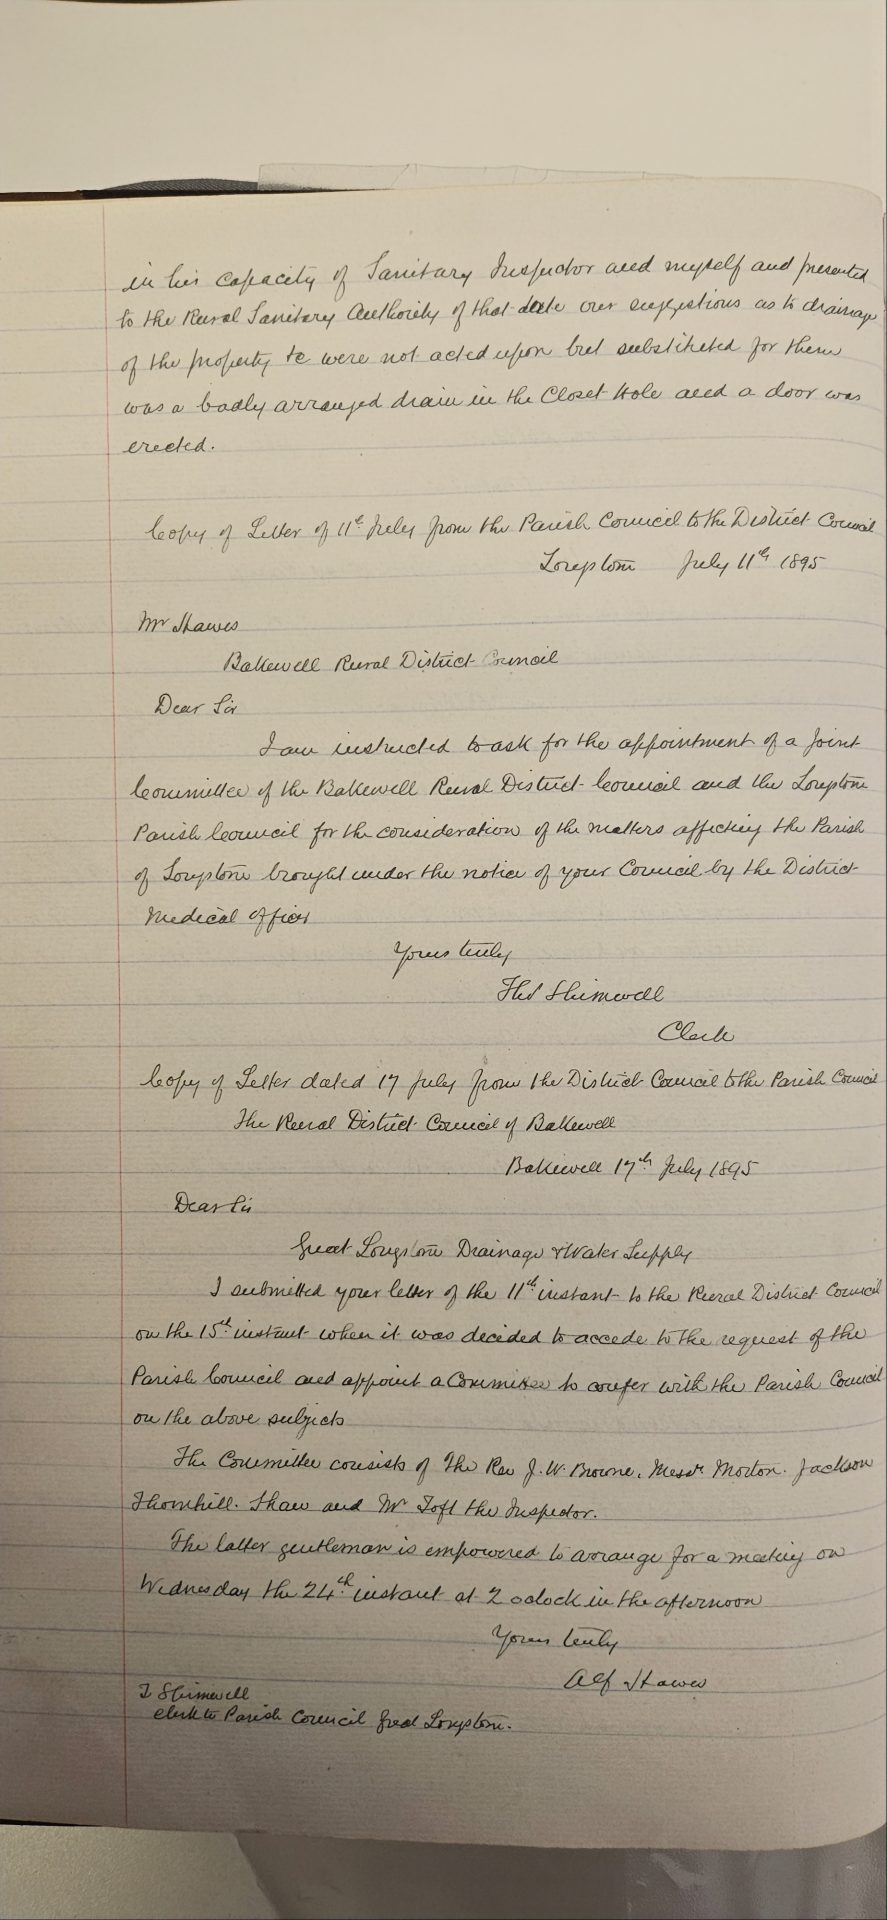 in his capacity of Sanitary Inspector and myself and presented
to the Rural Sanitary Authority of that date our suggestions as to drainage
of the property &c were not acted upon but substituted for them
was a badly arranged drain in the Closet Hole and a door was
erected.
Copy of Letter of 11th July from the Parish Council to the District Council
Longstone July 11th 1895
Mr Hawes
Bakewell Rural District Council
Dear Sir
I am instructed to ask for the appointment of a Joint
Committee of the Bakewell Rural District Council and the Longstone
Parish Council for the consideration of the matters affecting the Parish
of Longstone brought under the notice of your Council by the District
Medical Officer
Yours truly
Thos Shimwell
Clerk
Copy of Letter dated 17 July from the District Council to the Parish Council
The Rural District Council of Bakewell
Bakewell 17th July 1895
Dear Sir
Great Longstone Drainage & Water Supply
I submitted your letter of the 11th instant to the Rural District Council
on the 15th instant when it was decided to accede to the request of the
Parish Council and appoint a Committee to confer with the Parish Council
on the above subjects
The Committee consists of The Rev J. W. Browne, Messrs Morton. Jackson
Thornhill. Shaw and Mr Toft the Inspector.
The latter gentleman is empowered to arrange for a meeting on
Wednesday the 24th instant at 2 oclock in the afternoon
Yours truly
Alf Hawes
T Shimwell
Clerk to Parish Council Great Longstone.